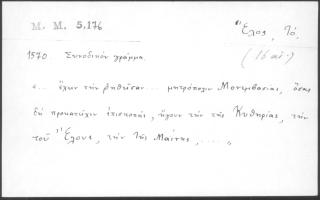 M. M. 5,176
Ἕλος, Τό.
(16 αἰ.)
1570. Συνοδικὸν γράμμα.
«... ἔχων τὴν ῥηθεῖσαν... μητρόπολιν Μονεμβασίας, ὅσας
δὴ προκατεῖχεν ἐπισκοπάς, ἤγουν τήν τε Κυθηρίας, τὴν
τοῦ Ἕλους, τὴν τῆς Μαΐνης, ...... »